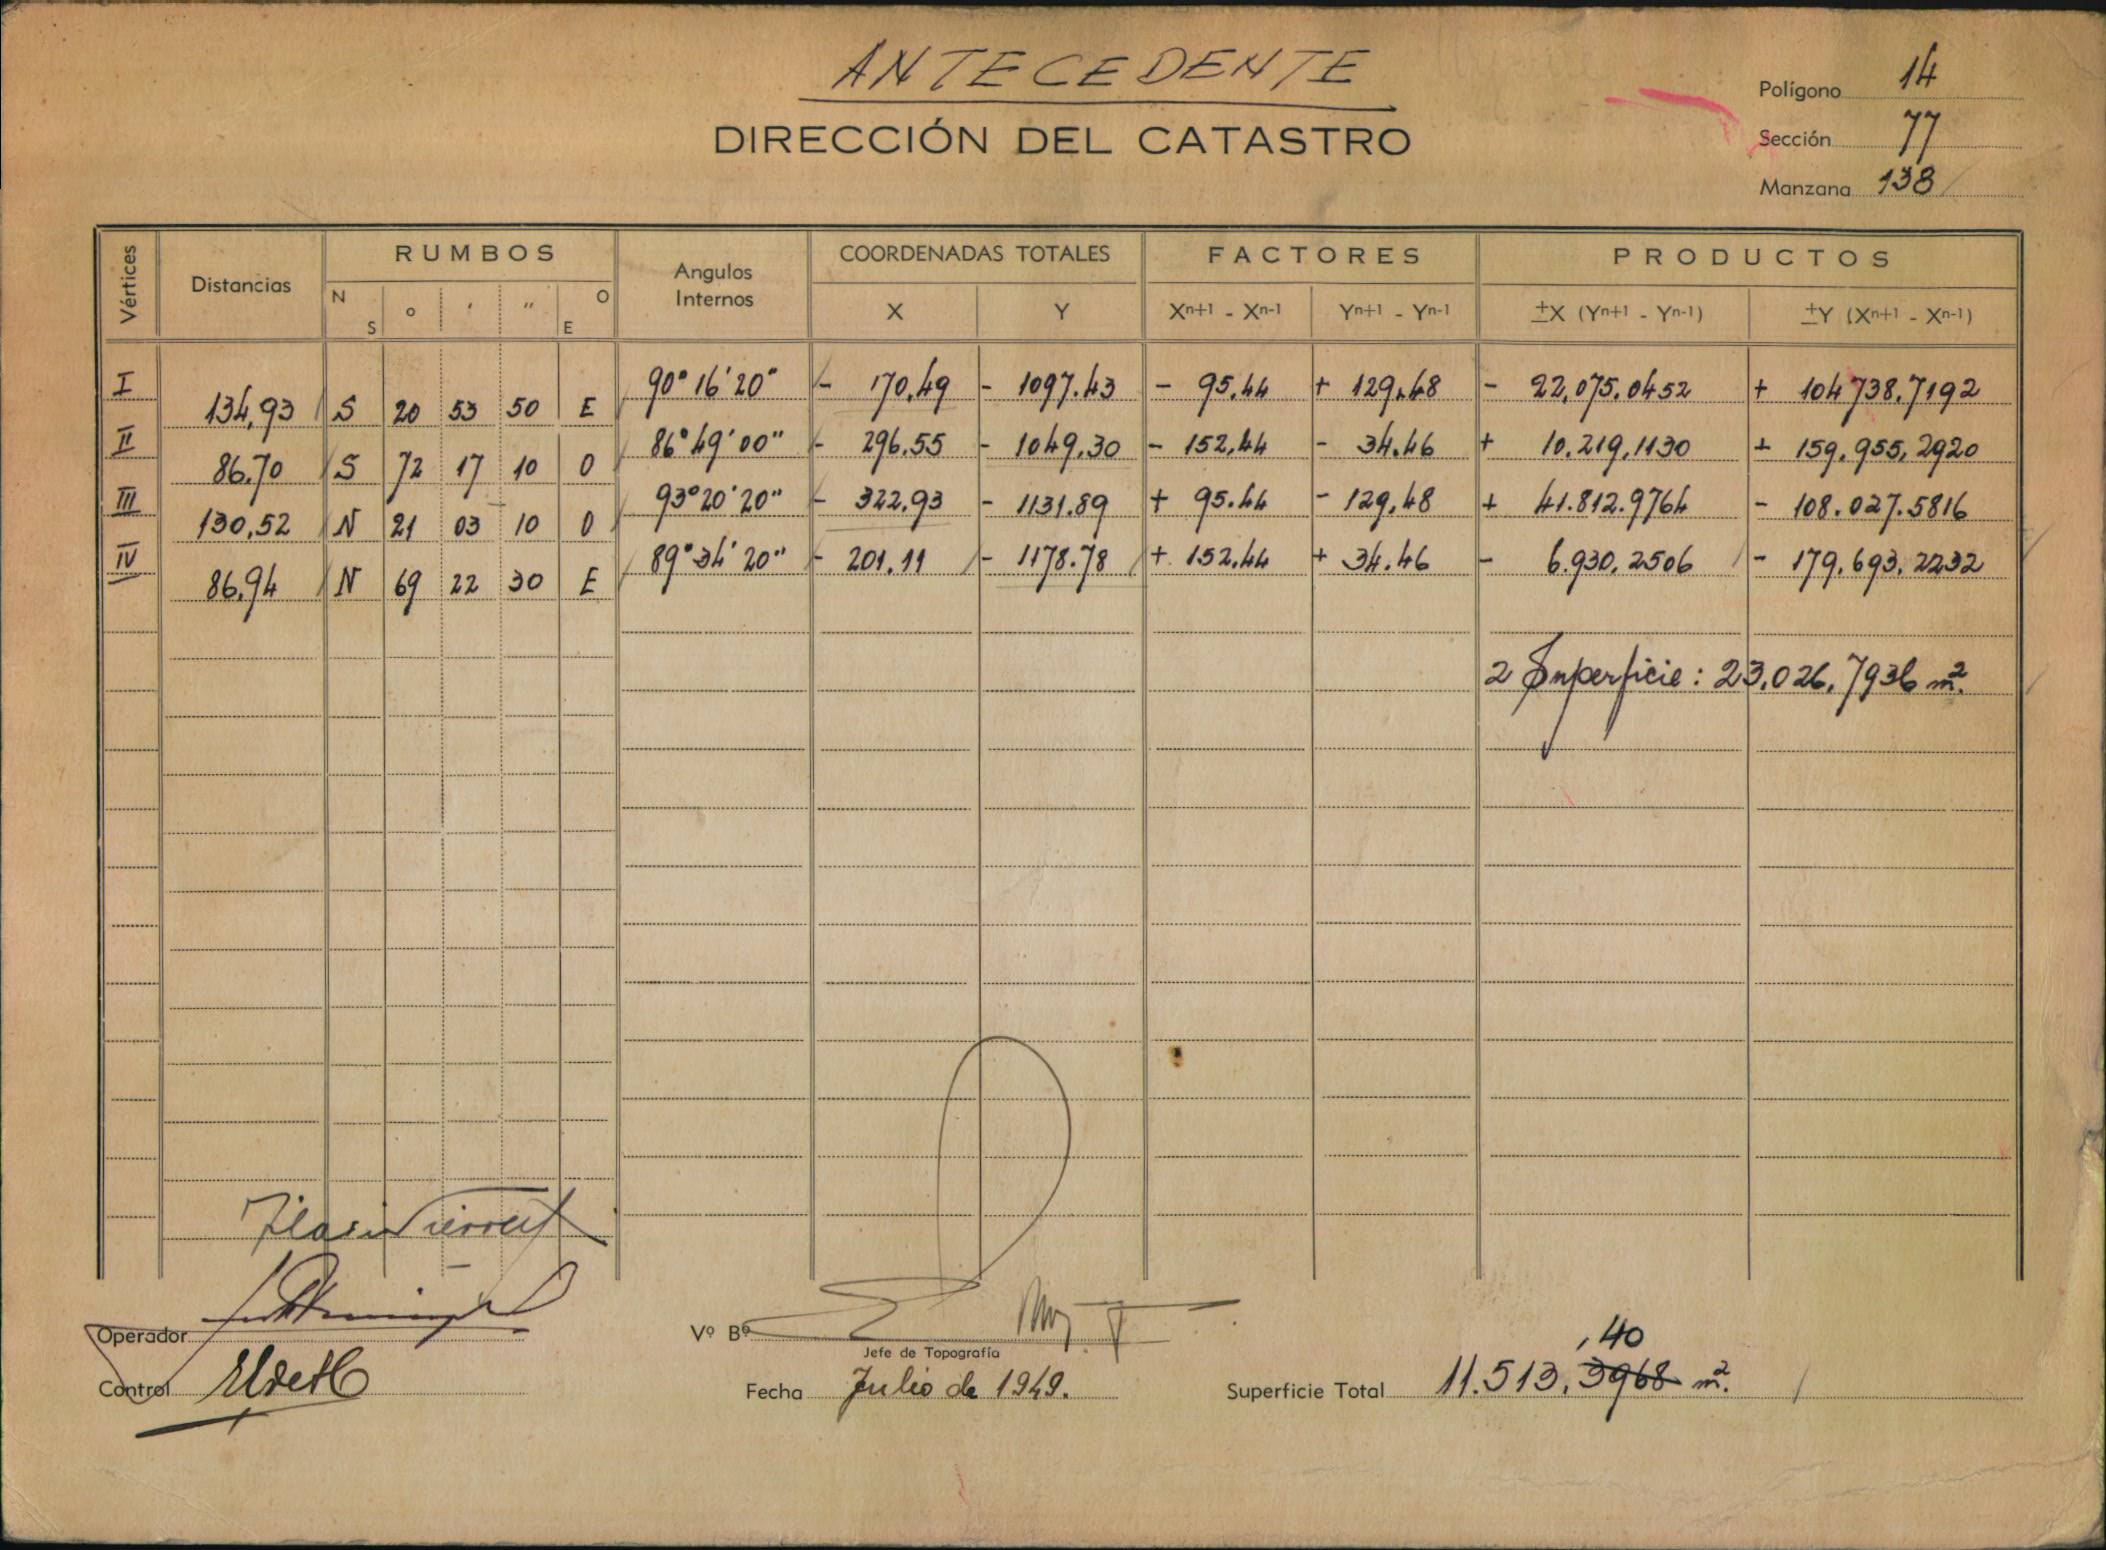 ANTECEDENTE
DIRECCIÓN DEL CATASTRO
Polígono 14
Sección 77
Manzana 138
Vértices Distancias RUMBOS Angulos Internos COORDENADAS TOTALES FACTORES PRODUCTOS
N S o ' " O E X Y Xn+1 - Xn-1 Yn+1 - Yn-1 ±X (Yn+1 - Yn-1) ±Y (Xn+1 - Xn-1)
I 90° 16' 20" - 170,49 - 1097.43 - 95.44 + 129.48 - 22,075.0452 + 104738.7192
134,93 S 20 53 50 E
II 86° 49' 00" - 296.55 - 1049.30 - 152.44 - 34.46 + 10.219,1130 + 159.955,2920
86.70 S 72 17 10 O
III 93° 20' 20" - 322,93 - 1131.89 + 95.44 - 129,48 + 41.812.9764 - 108.027.5816
130,52 N 21 03 10 O
IV 89° 34' 20" - 201.11 - 1178.78 + 152.44 + 34.46 - 6.930,2506 - 179.693,2232
86,94 N 69 22 30 E
2 Superficie: 23.026,7936 m².
Operador
Vº Bº
Jefe de Topografía
Control
Fecha Julio de 1949.
,40
Superficie Total 11.513,3968 m².